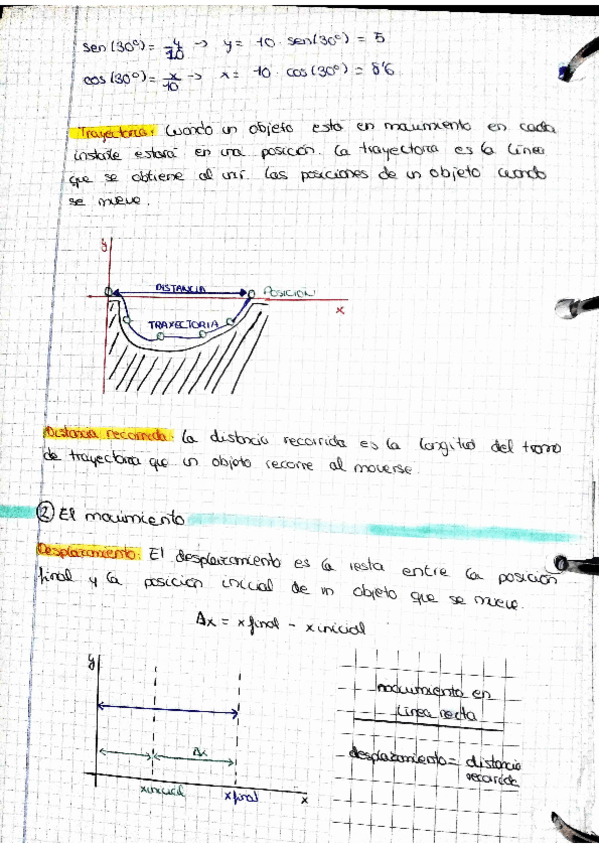 sen(30º) = y/10 -> y = 10 · sen(30º) = 5
cos(30º) = x/10 -> x = 10 · cos(30º) = 8'6
Trayectoria: Cuando un objeto está en movimiento en cada
instante estará en una posición. La trayectoria es la línea
que se obtiene al unir las posiciones de un objeto cuando
se mueve.
y
DISTANCIA
POSICIÓN
x
TRAYECTORIA
Distancia recorrida: La distancia recorrida es la longitud del tramo
de trayectoria que un objeto recorre al moverse.
② El movimiento
Desplazamiento: El desplazamiento es la resta entre la posición
final y la posición inicial de un objeto que se mueve.
Δx = x final - x inicial
y
Δx
x inicial
x final
x
movimiento en
línea recta
desplazamiento = distancia
recorrida